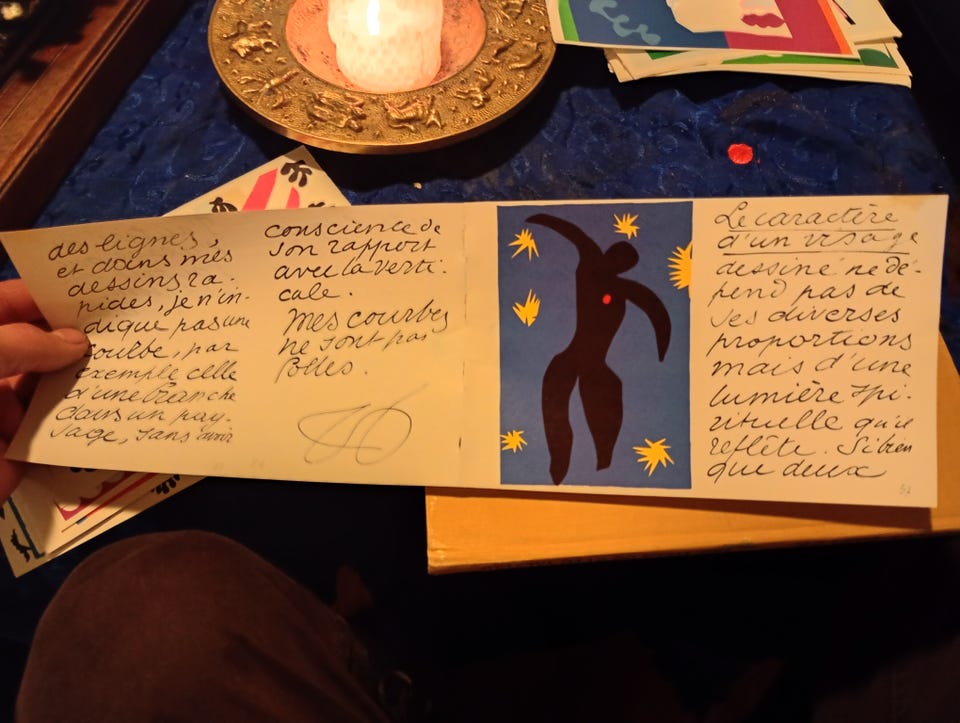 des lignes,
et dans mes
dessins ra-
pides, je n'in-
dique pas une
courbe, par
exemple celle
d'une branche
dans un pay-
sage, sans avoir
conscience de
son rapport
avec la verti-
cale.
Mes courbes
ne sont pas
folles.
Le caractère
d'un visage
dessiné ne dé-
pend pas de
ses diverses
proportions
mais d'une
lumière spi-
rituelle qu'il
reflète. Si bien
que deux